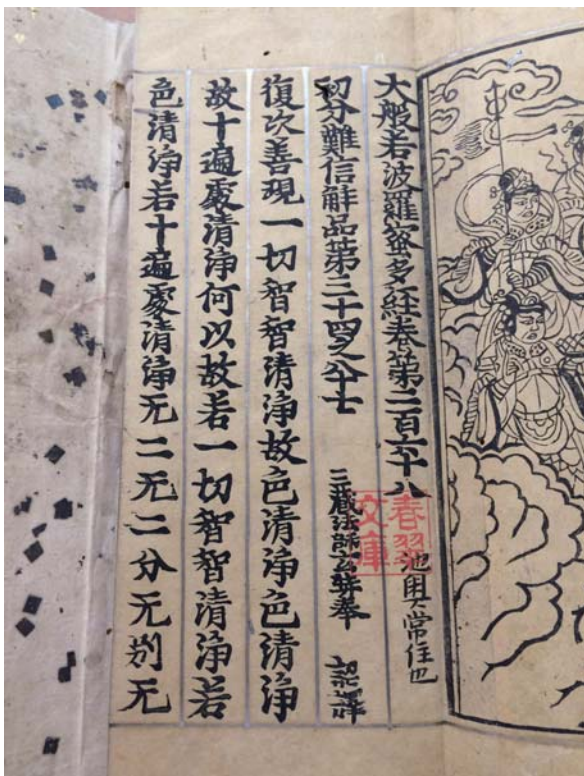 大般若波羅蜜多経卷第二百六十八 池奥常住也
春翠文庫
初分難信解品第三十四之八十七 三藏法師玄奘奉 詔譯
復次善現一切智智清浄故色清浄色清浄
故十遍處清浄何以故若一切智智清浄若
色清浄若十遍處清浄无二无二分无別无